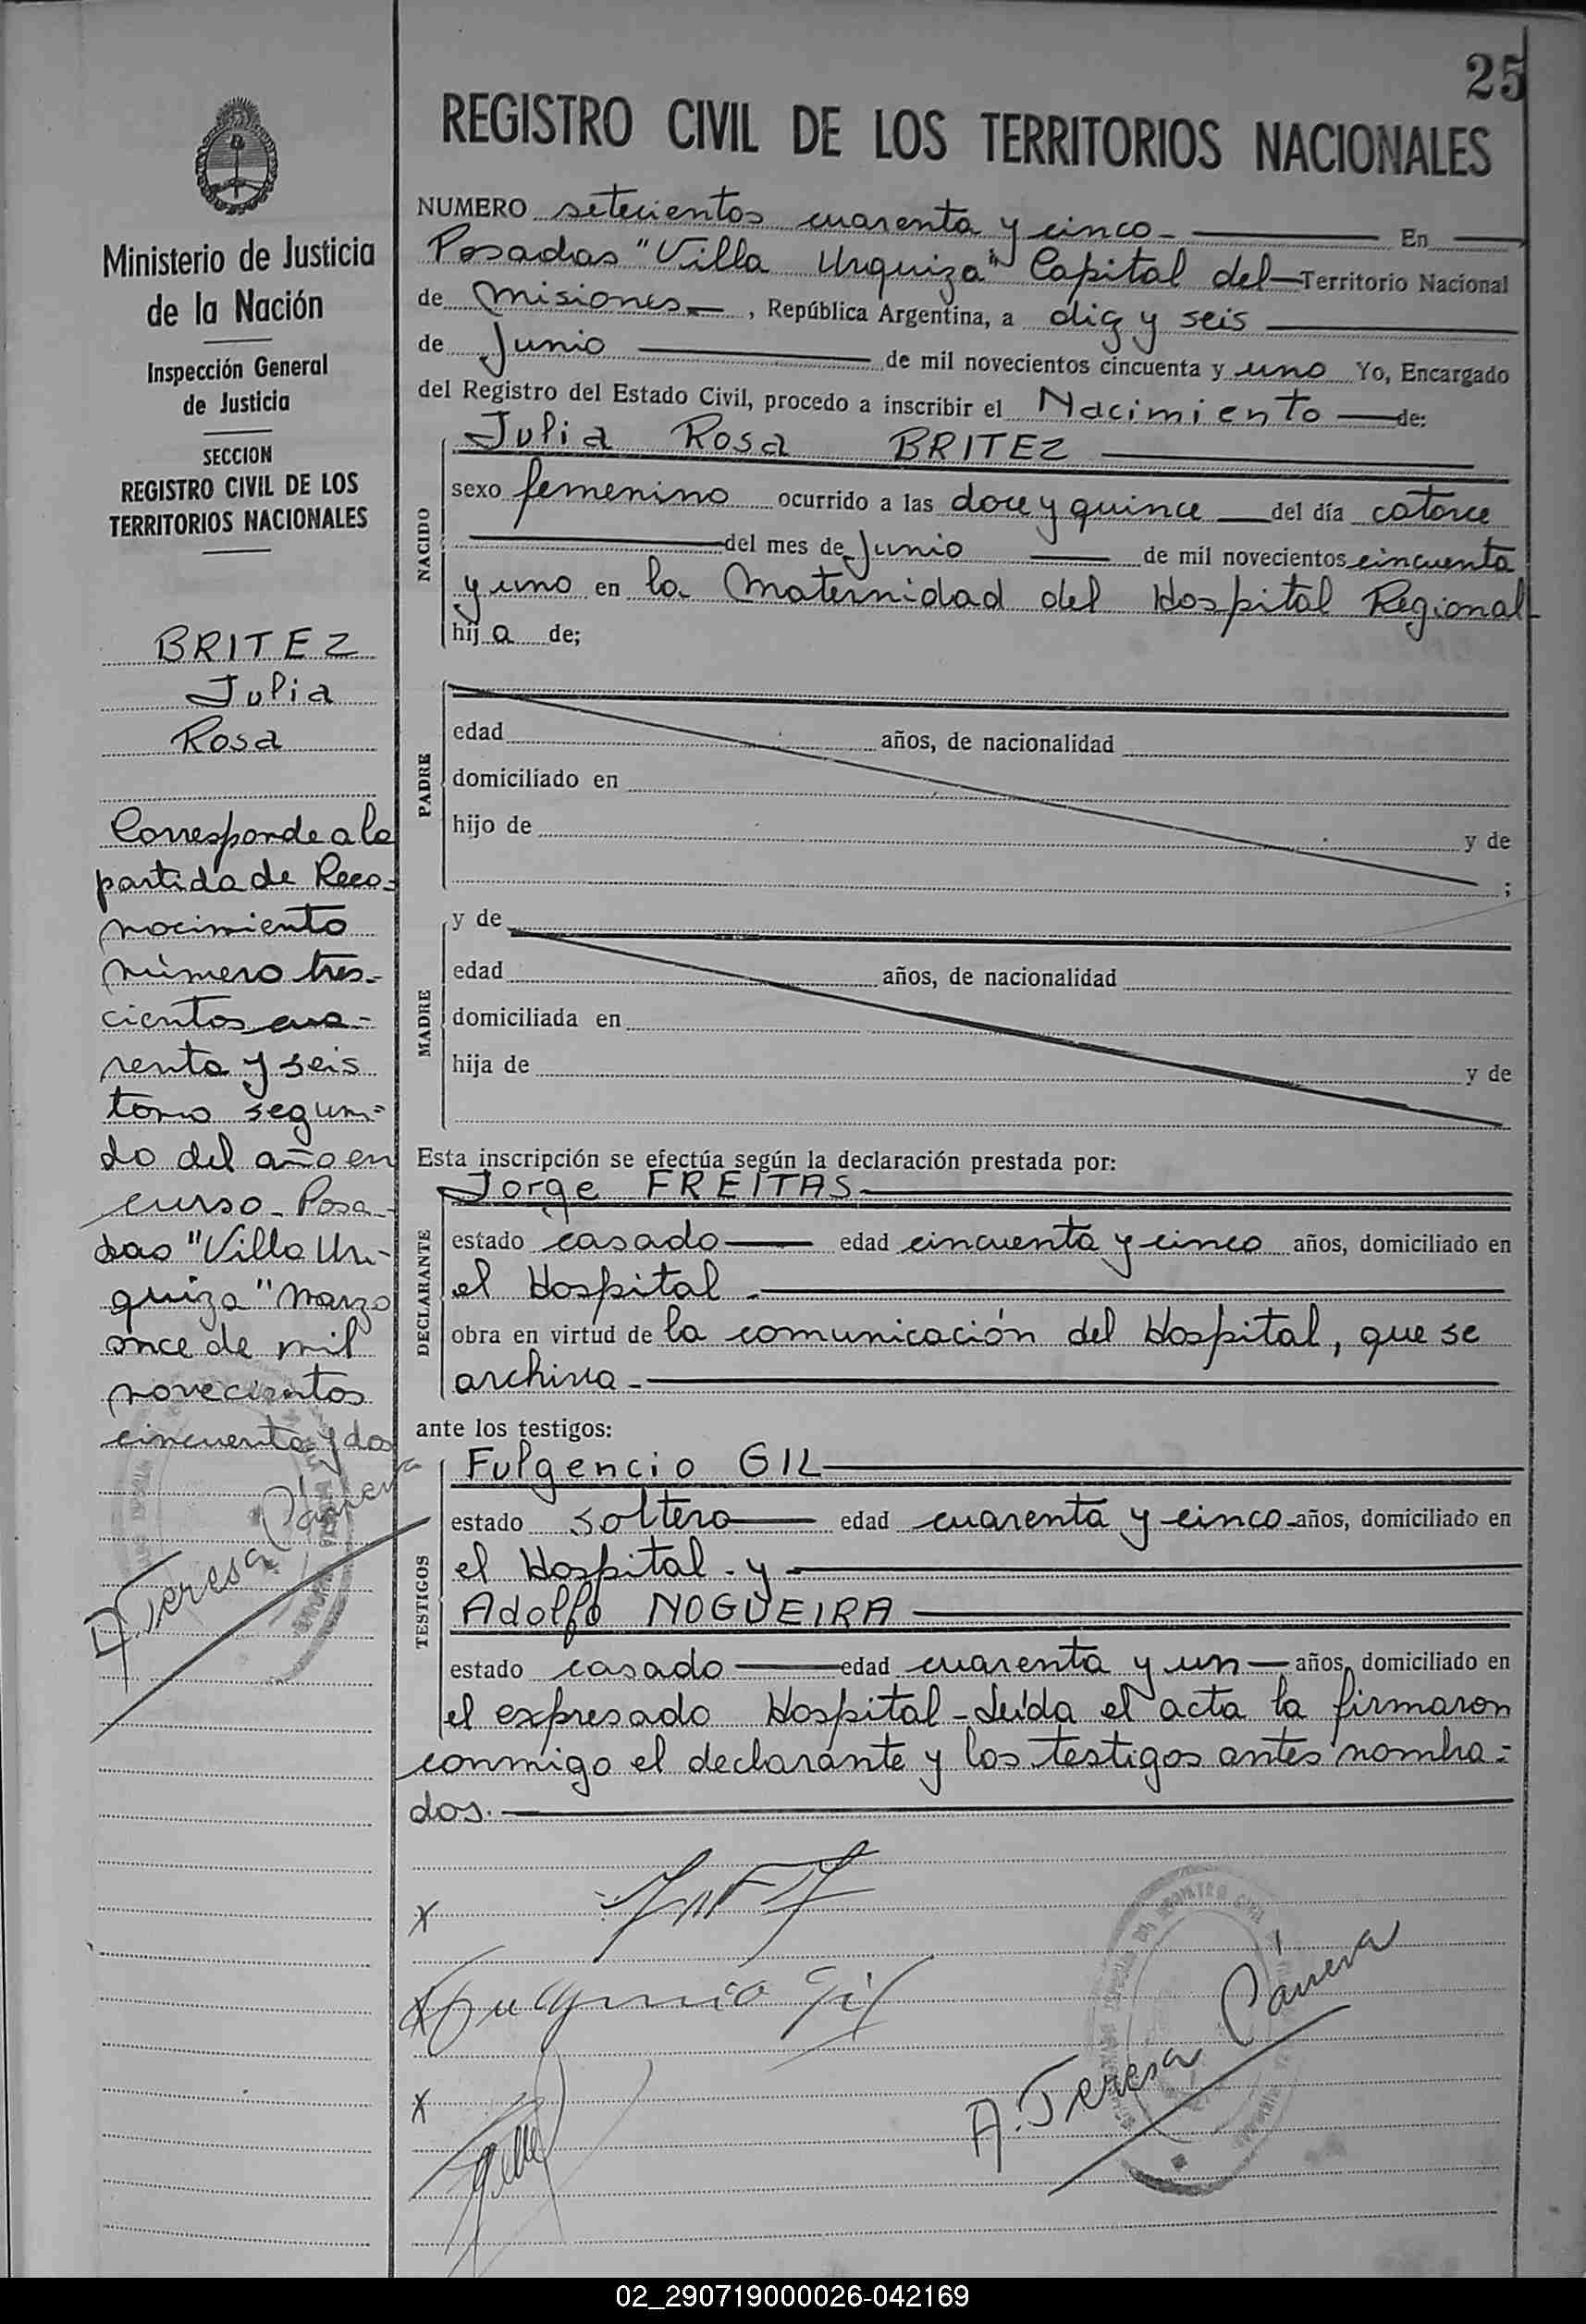 25
REGISTRO CIVIL DE LOS TERRITORIOS NACIONALES
Ministerio de Justicia
de la Nación
Inspección General
de Justicia
SECCION
REGISTRO CIVIL DE LOS
TERRITORIOS NACIONALES
BRITEZ
Julia
Rosa
Corresponde a la
partida de Reco-
nocimiento
número tres-
cientos cua-
renta y seis
tomo segun-
do del año en
curso - Posa-
das "Villa Ur-
quiza" Marzo
once de mil
novecientos
cincuenta y dos
A. Teresa Cánera
NUMERO setecientos cuarenta y cinco - En
Posadas "Villa Urquiza" Capital del Territorio Nacional
de Misiones, República Argentina, a diez y seis
de Junio de mil novecientos cincuenta y uno Yo, Encargado
del Registro del Estado Civil, procedo a inscribir el Nacimiento de:
Julia Rosa BRITEZ
NACIDO
sexo femenino ocurrido a las doce y quince del día catorce
del mes de Junio de mil novecientos cincuenta
y uno en la Maternidad del Hospital Regional
hija de;
PADRE
edad años, de nacionalidad
domiciliado en
hijo de y de
;
MADRE
y de
edad años, de nacionalidad
domiciliada en
hija de y de
Esta inscripción se efectúa según la declaración prestada por:
Jorge FREITAS
DECLARANTE
estado casado edad cincuenta y cinco años, domiciliado en
el Hospital -
obra en virtud de la comunicación del Hospital, que se
archiva -
ante los testigos:
TESTIGOS
Fulgencio GIL
estado soltero edad cuarenta y cinco años, domiciliado en
el Hospital - y -
Adolfo NOGUEIRA
estado casado edad cuarenta y un años, domiciliado en
el expresado Hospital - Leída el acta la firmaron
conmigo el declarante y los testigos antes nombra-
dos.
x
x Fulgencio Gil
x
A. Teresa Cánera
02_290719000026-042169